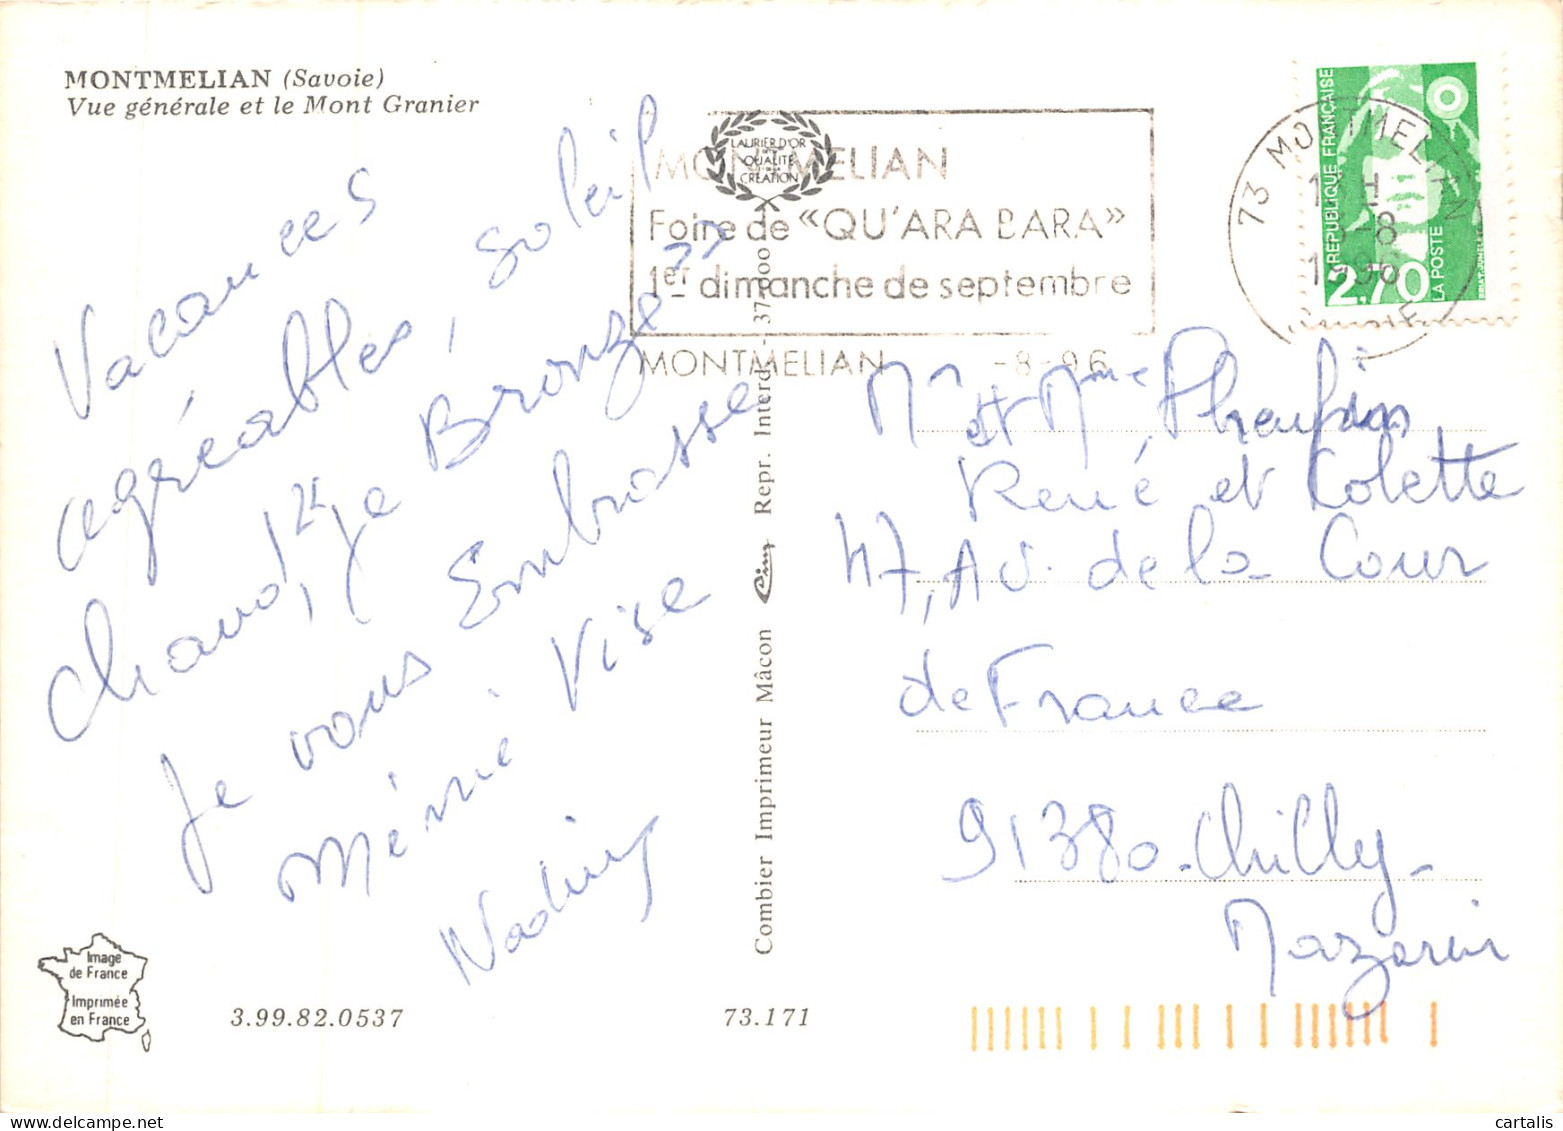 MONTMELIAN (Savoie)
Vue générale et le Mont Granier
Vacances
agréables, soleil
chaud, je Bronze
je vous Embrasse
Mémé Vise
LAURIER D'OR
QUALITÉ
CRÉATION
MONTMELIAN
Foire de «QU'ARA BARA»
1er dimanche de septembre
MONTMELIAN -8-96
73 MONTMELIAN
-8
1996
RÉPUBLIQUE FRANÇAISE
2,70
LA POSTE
Combier Imprimeur Mâcon Cim Repr. Interd.
Mr et Mme
René et Colette
47, Av. de la Cour
de France
91380 - Chilly -
Mazarin
Image
de France
Imprimée
en France
3.99.82.0537
73.171
cartalis